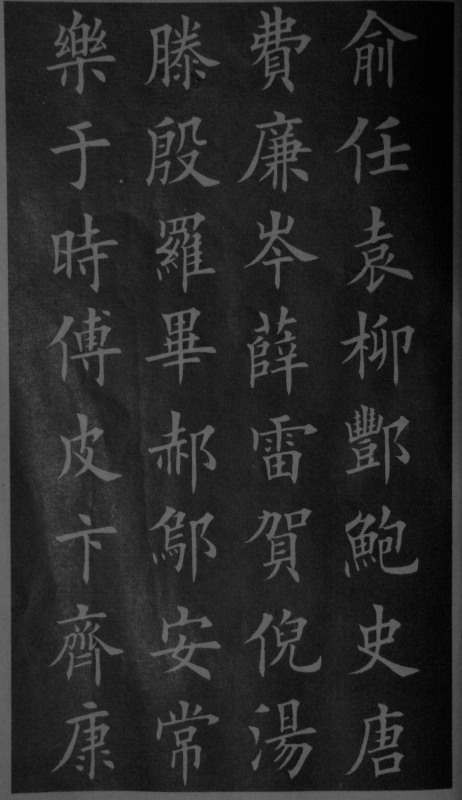 俞任袁柳酆鮑史唐
費廉岑薛雷賀倪湯
滕殷羅畢郝鄔安常
樂于時傅皮卞齊康